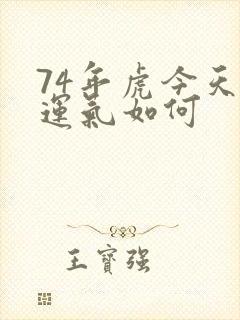 74年虎今天
運氣如何
王寶强